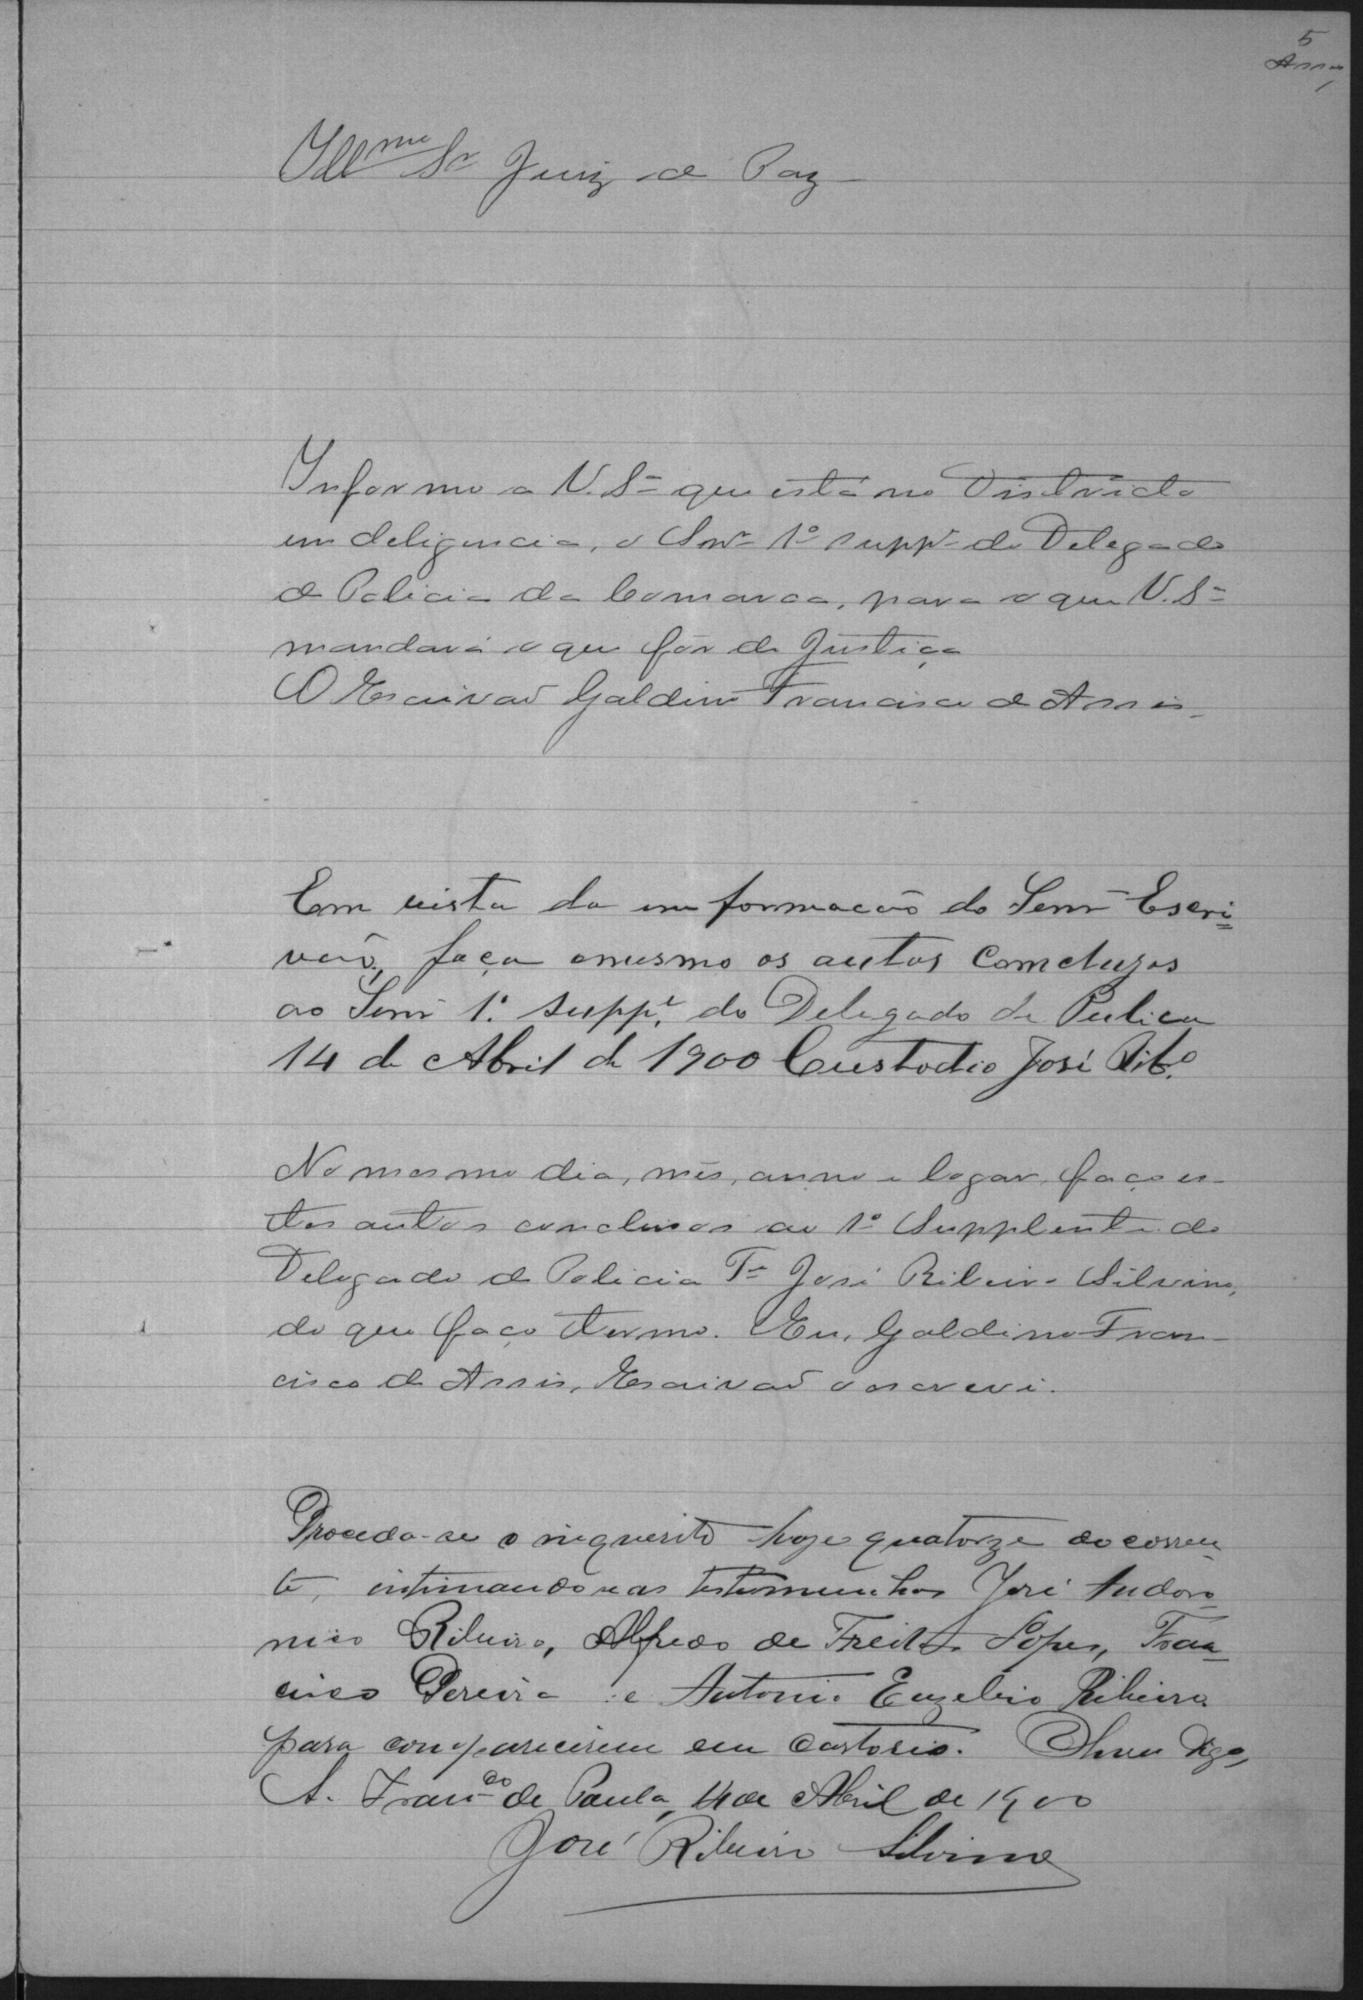 5
Assis
Ill.me Sr Juiz de Paz
Informo a V. Sª que está no Districto
em deligencia, o Snr 1º suppe do Delegado
de Policia da Comarca, para o que V. Sª
mandará o que fôr de Justiça
O Escrivaõ Galdino Francisco de Assis.
Em vista da imformacaõ do Senr Escri=
vaõ, faça omesmo os autos Comcluzos
ao Senr 1º suppe do Delegado de Pulicia
14 de Abril de 1900 Custodio José Ribº
No mesmo dia, mês, anno e logar, faço es-
tes autos conclusos ao 1º Supplente do
Delegado de Policia Te José Ribeiro Silvino,
do que faço termo. Eu, Galdino Fran-
cisco de Assis, Escrivaõ o escrevi.
Proceda-se o inquerito hoje quatorze do corren-
te, intimando se as testemunhas José Andro-
nico Ribeiro, Alfredo de Freitas Lopes, Fran-
cisco Pereira e Antonio Euzebio Ribeiro
para comparecerem em Cartorio. digo,
S. Franco de Paula, 14 de Abril de 1900
José Ribeiro Silvino